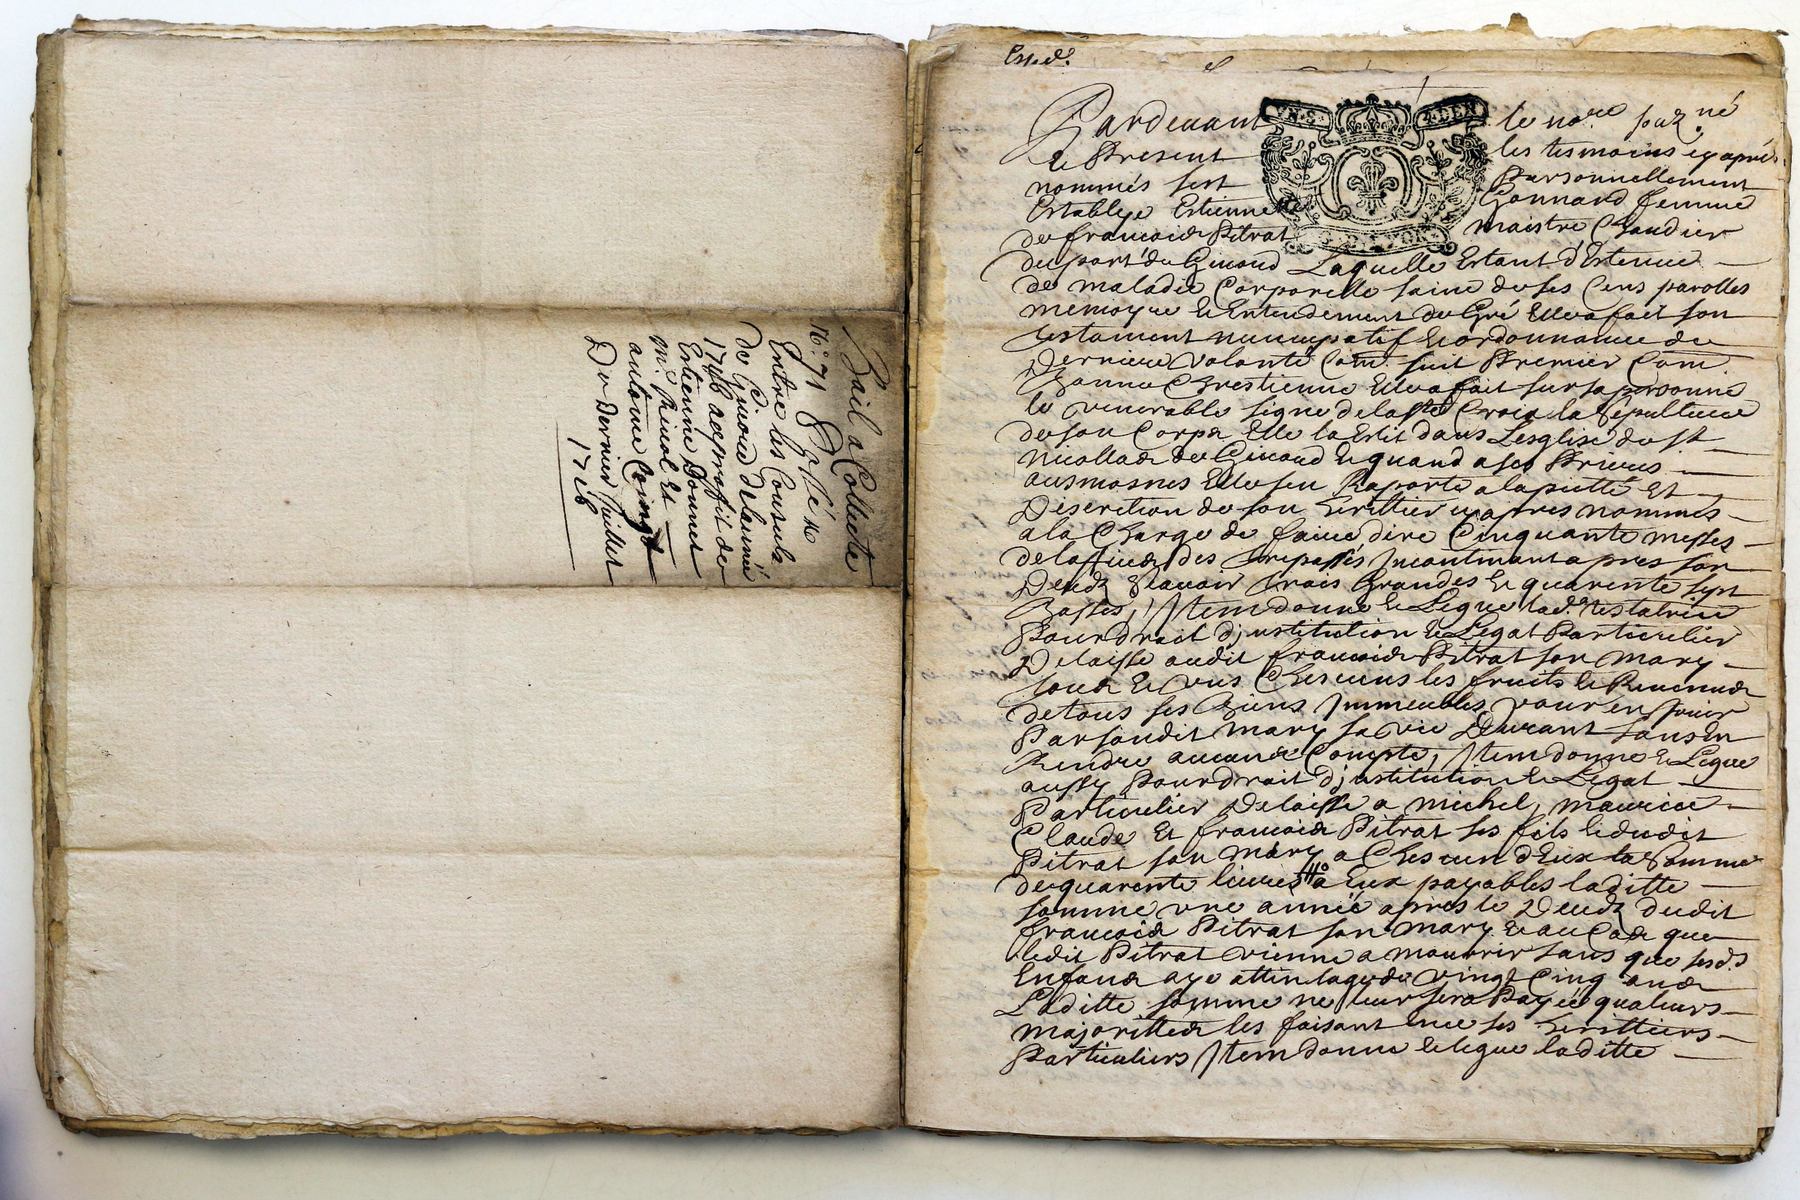 Bail a Collecte
N.º 71
Entre les Consuls
de Givors de lannée
1746 au proffit de
Estienne Bonnet
antoine Coingt
Du dernier Juillet
1746
Exped.
Pardevant le no.re
le Present les tesmoins cy aprés
nommés fert Personnellement
Establye Estiennette Gonnard femme
de francois Pitrat maistre Chaudier
du port de Givord Laquelle Estant d'Estenue
de maladie Corporelle saine de ses Cens parolles
memoyre et Entendement de Gré Elle a fait son
testament nuncupatif et ordonnance de
Derniere Volonté Com.e suit Premier Com.e
Bonne Chrestienne Elle a fait sur sa personne
le venerable signe de la s.te Croix la sépulture
de son Corps Elle la Eslit dans Lesglise de st
nicollas de Givord et quand a ses Prieres
ausmosnes Elle sen Raporte a la pietté Et
Discretion de son herittier cy apres nommes
a la Charge de faire dire Cinquante messes
de loffice des trepassés Incontinant apres son
Deudz scavoir trois Grandes et quarente sept
Basses, Item donne et Legue lad.e testatrice
Pour droit d'institution et Legat Particulier
Delaisse audit francois Pitrat son mary
tous et Uns Chescuns les fruits et Revenus
de tous ses Biens Immeubles pour en Jouir
Par sondit mary sa vie Durant sans En
Rendre aucuns Compte, Item donne et Legue
aussy Pour droit d'institution et Legat
Particulier Delaisse a michel, maurice
Claude Et francois Pitrat ses fils et dudit
Pitrat son mary a Chescun d'Eux la somme
de quarente livres a Eux payables laditte
somme une année apres le Deudz dudit
francois Pitrat son mary et au Cas que
ledit Pitrat vienne a mourrir sans que sesd.s
Enfans aye attin lage de vingt Cinq ans
Laditte somme ne leur sera Payée qua leurs
majorittes les faisant ses herittiers
Particuliers Item donne et legue laditte